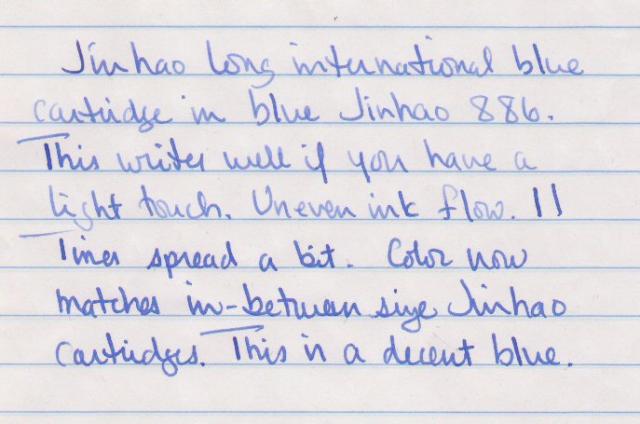 Jinhao long international blue
cartridge in blue Jinhao 886.
This writes well if you have a
light touch. Uneven ink flow. 11
Times spread a bit. Color now
matches in-between size Jinhao
cartridges. This is a decent blue.